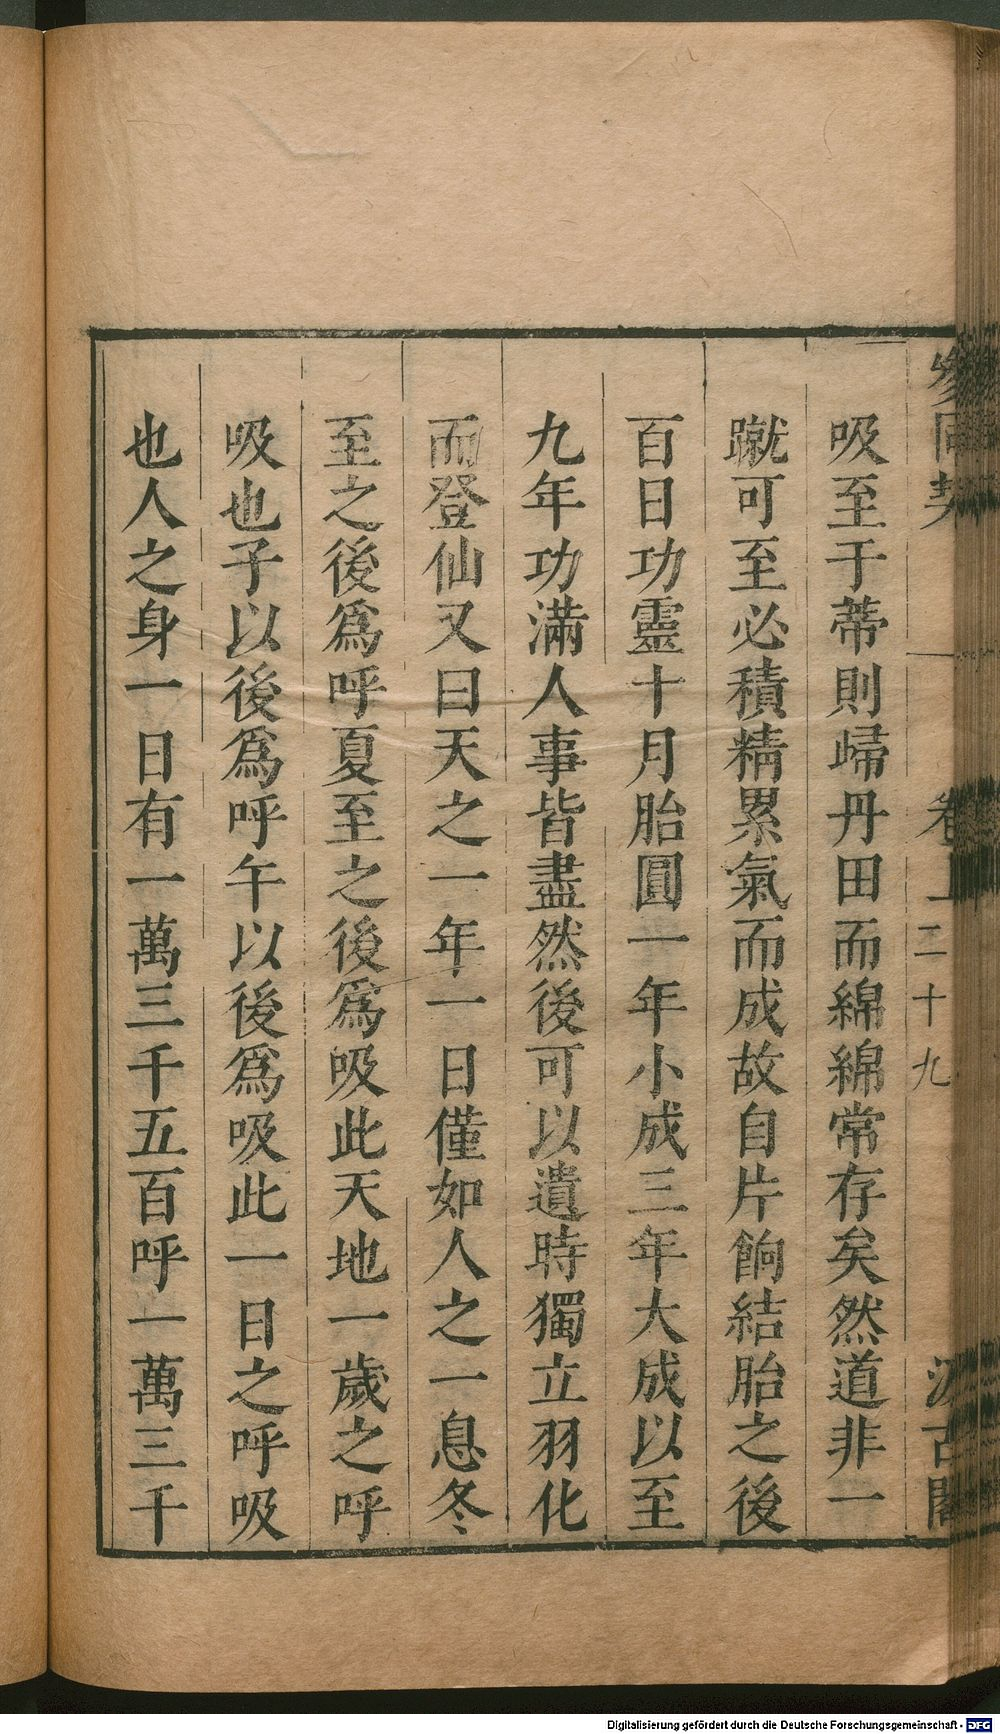 參同契 卷上 二十九 汲古閣
吸至于蒂則歸丹田而綿綿常存矣然道非一
蹴可至必積精累氣而成故自片餉結胎之後
百日功靈十月胎圓一年小成三年大成以至
九年功滿人事皆盡然後可以遺時獨立羽化
而登仙又曰天之一年一日僅如人之一息冬
至之後爲呼夏至之後爲吸此天地一歲之呼
吸也子以後爲呼午以後爲吸此一日之呼吸
也人之身一日有一萬三千五百呼一萬三千
Digitalisierung gefördert durch die Deutsche Forschungsgemeinschaft - DFG